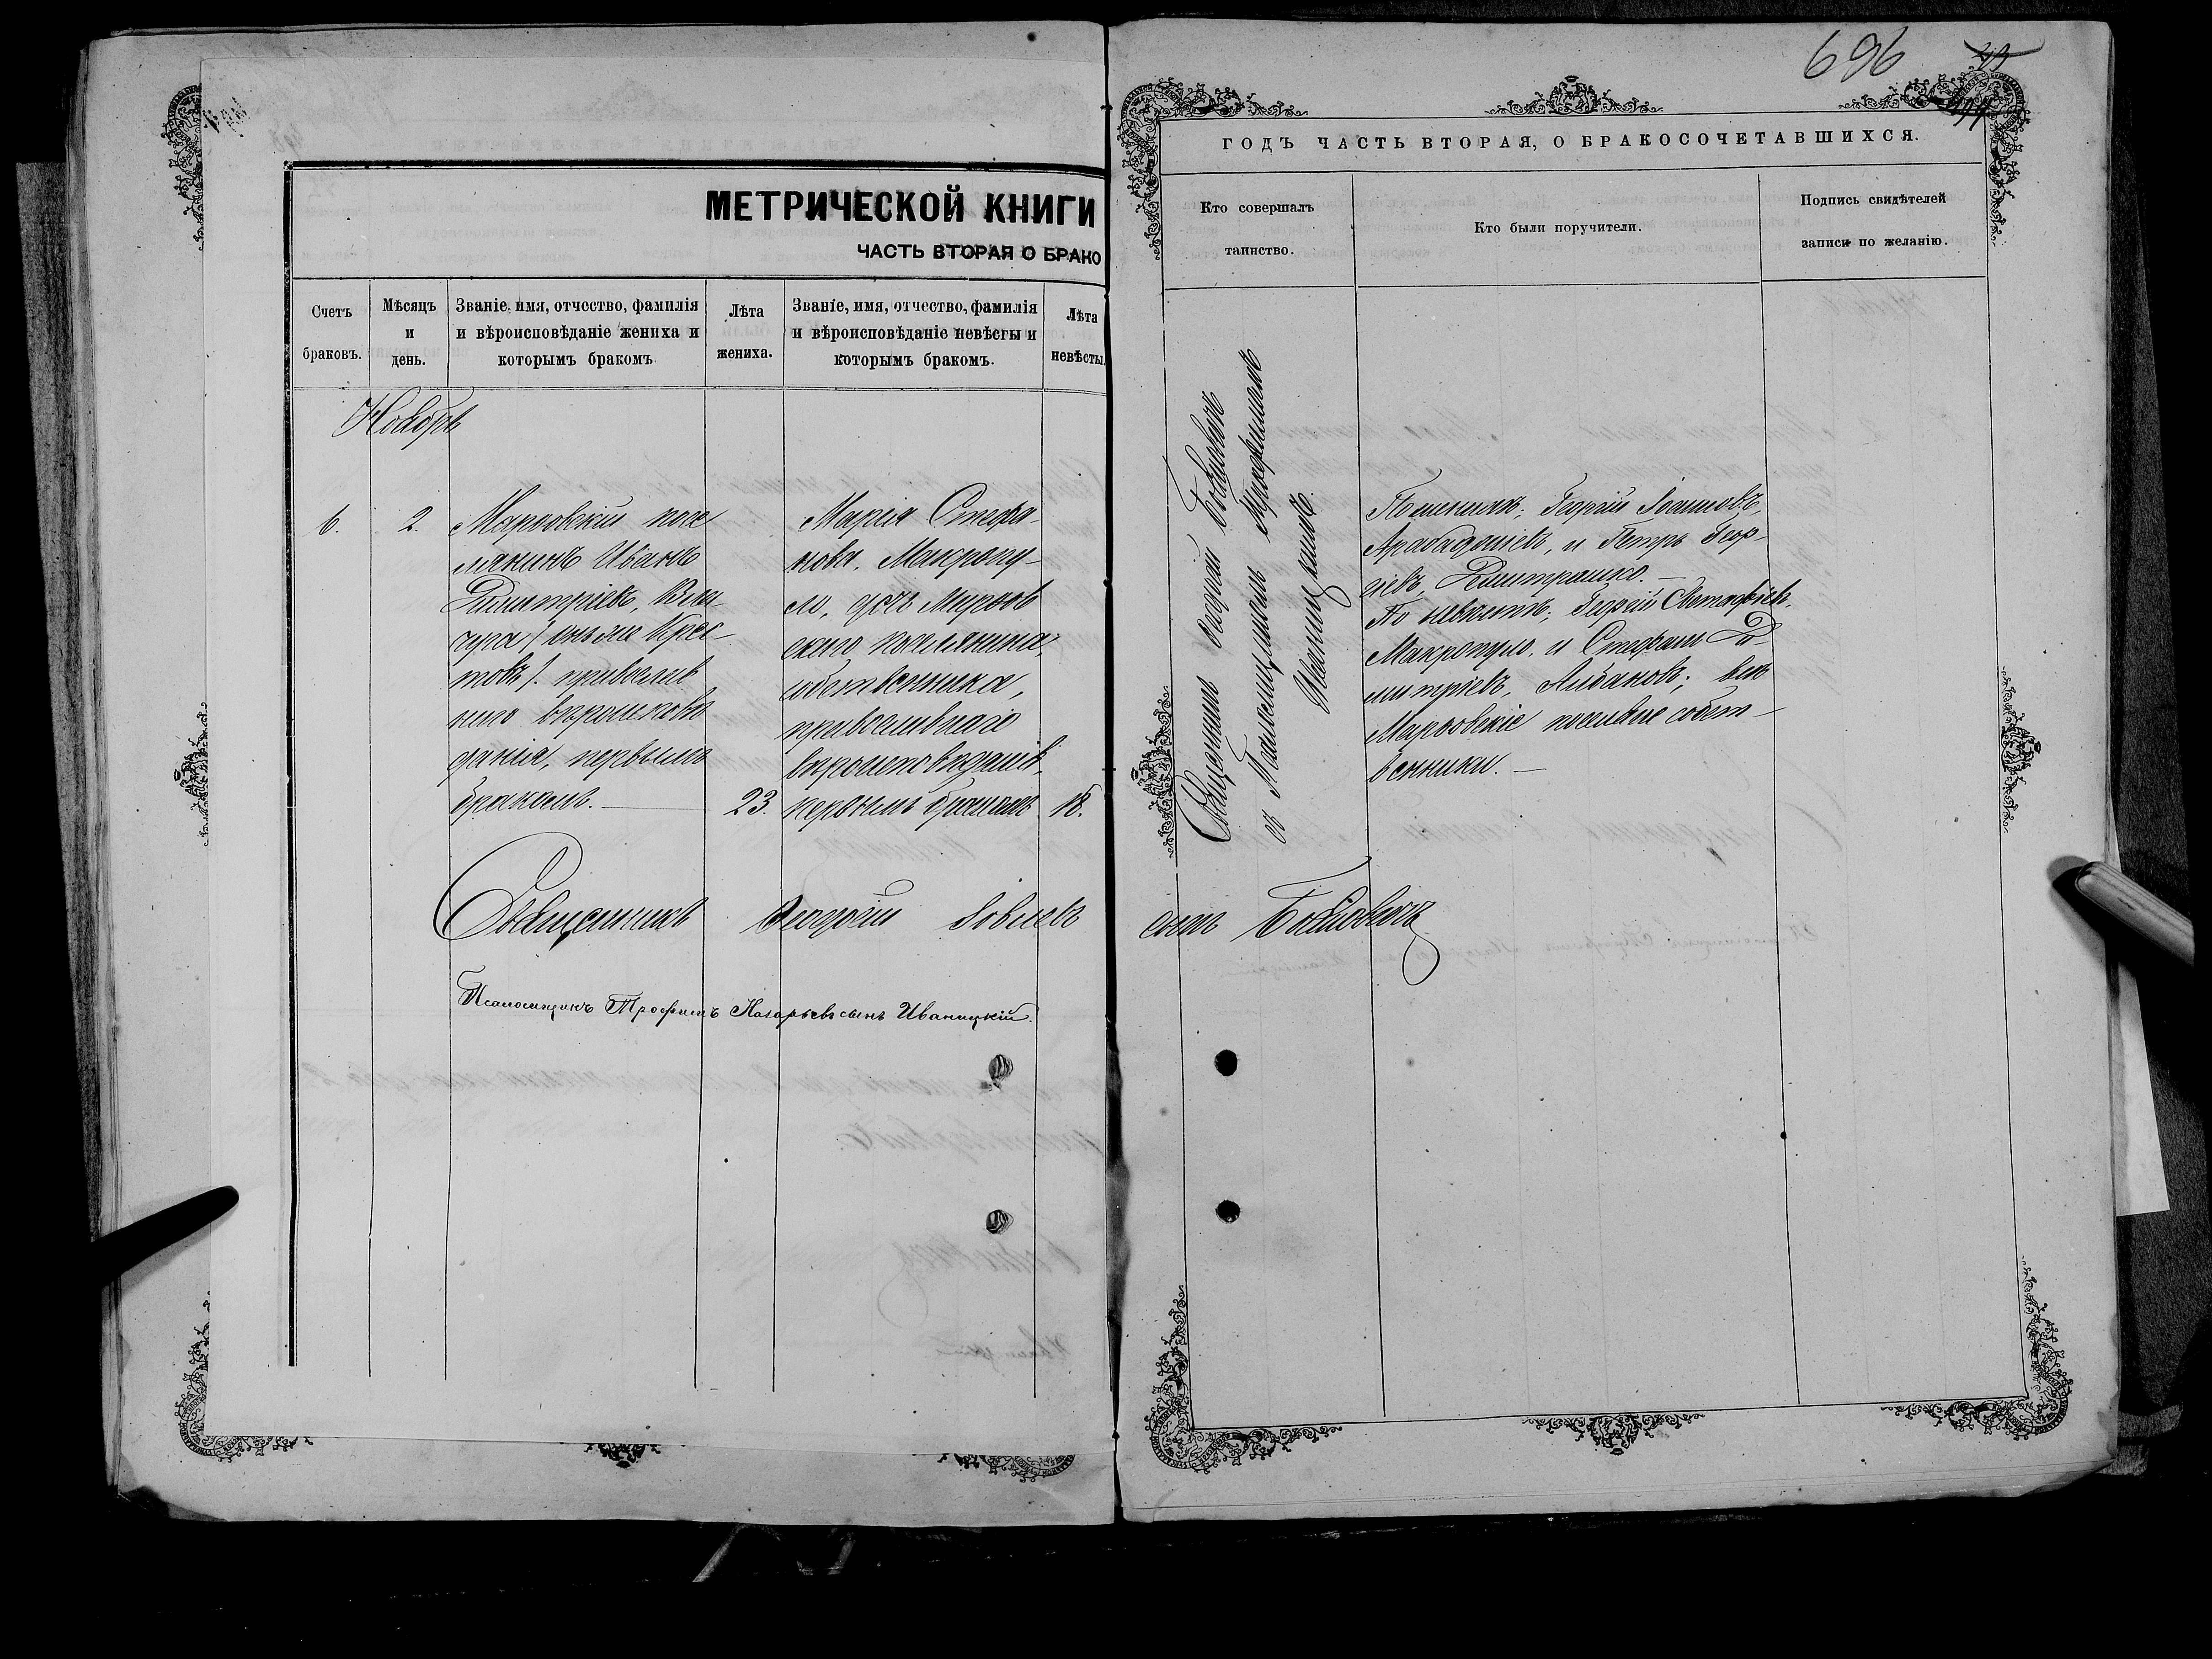 696
МЕТРИЧЕСКОЙ КНИГИ
ЧАСТЬ ВТОРАЯ О БРАКО
Счетъ браковъ.
Мѣсяцъ и день.
Званіе, имя, отчество, фамилія
и вѣроисповѣданіе жениха и
которымъ бракомъ.
Лѣта
жениха.
Званіе, имя, отчество, фамилія
и вѣроисповѣданіе невѣсты и
которымъ бракомъ.
Лѣта
невѣсты.
Ноябрь
6.
2.
Марьовскій посе
лянинъ Иванъ
Димитріевъ,
онъ же Крес-
товъ). православ
наго вѣроисповѣ
данія, первымъ
бракомъ.
23.
Марія Стефа-
нова. Макропу-
ло, дочь Марьов
скаго поселянина,
собственника,
православнаго
вѣроисповѣданія,
первымъ бракомъ
18.
Священникъ Георгій Іовлевъ
Псаломщикъ Трофимъ Назарьевъ сынъ Иваницкій.
ГОДЪ ЧАСТЬ ВТОРАЯ, О БРАКОСОЧЕТАВШИХСЯ.
Кто совершалъ
таинство.
Кто были поручители.
Подпись свидѣтелей
записи по желанію.
Священникъ Георгій
съ Псаломщикомъ Трофимомъ
Иваницкимъ.
По женихѣ; Георгій Іоанновъ,
Арабаджіевъ, и Петръ Геор-
гіевъ, Димитрашко.
По невѣстѣ; Георгій Евстафіевъ,
Макропуло, и Стефанъ Ди-
митріевъ, Албаковъ; всѣ
Марьовскіе поселяне собст-
венники.
сынъ